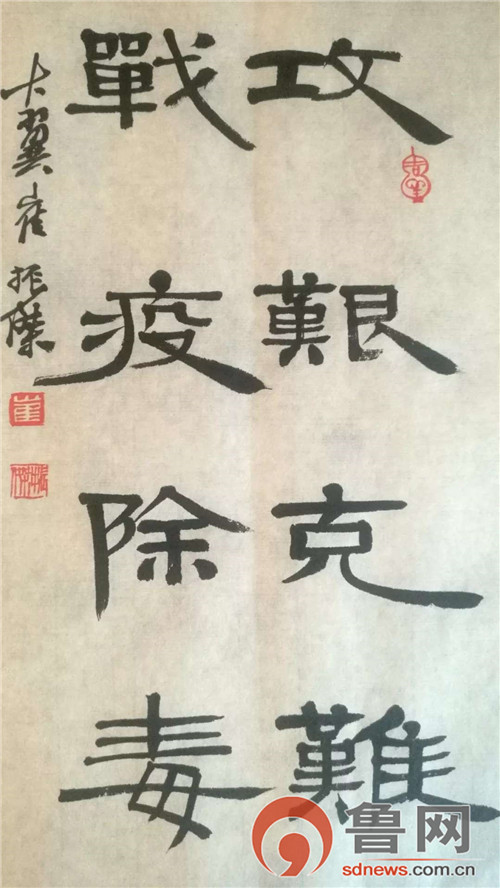 攻艱克難
戰疫除毒
大翼崔振傑
崔
鲁网
sdnews.com.cn